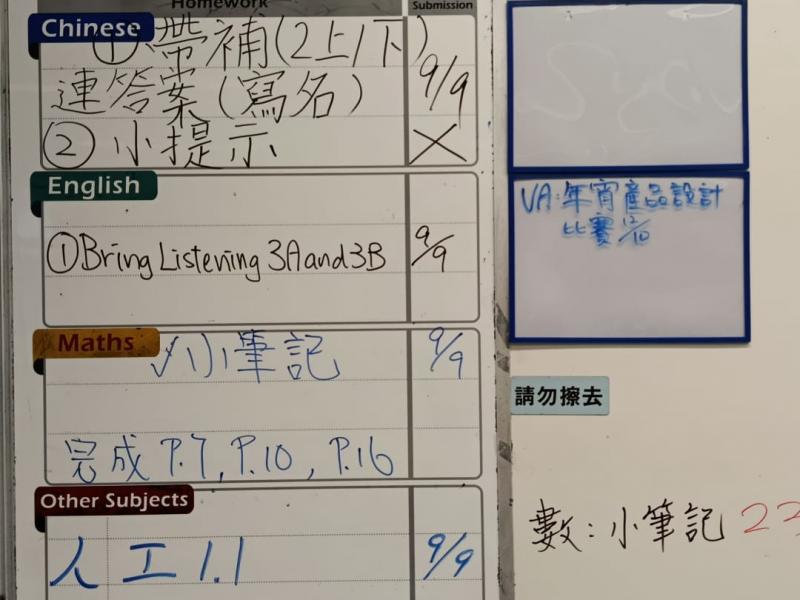 Homework
Submission
Chinese
①帶補(2上1下)
連答案(寫名)
9/9
② 小提示
×
English
① Bring Listening 3A and 3B
9/9
Maths
小筆記
9/9
完成 P.7, P.10, P.16
Other Subjects
人工 1.1
9/9
VA:年宵產品設計
比賽 12/10
請勿擦去
數:小筆記